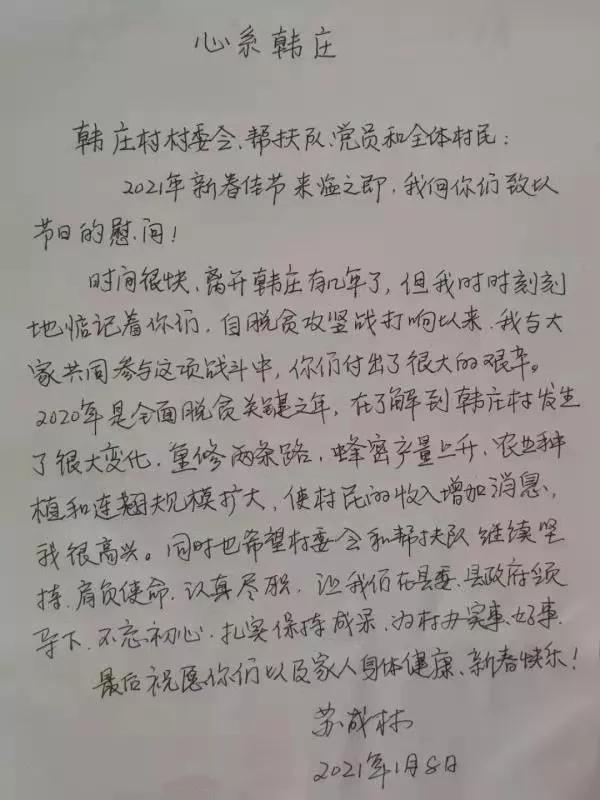 心系韩庄
韩庄村村委会、帮扶队、党员和全体村民：
2021年新春佳节来临之即，我向你们致以
节日的慰问！
时间很快、离开韩庄有几年了，但我时时刻刻
地惦记着你们，自脱贫攻坚战打响以来、我与大
家共同参与这项战斗中，你们付出了很大的艰辛。
2020年是全面脱贫关键之年，在了解到韩庄村发生
了很大变化，重修两条路，蜂蜜产量上升、农业种
植和连翘规模扩大，使村民的收入增加消息，
我很高兴。同时也希望村委会和帮扶队继续坚
持、肩负使命、认真尽职，让我们在县委、县政府领
导下、不忘初心、扎实保持成果、为村办实事、好事、
最后祝愿你们以及家人身体健康、新春快乐！
苏成林
2021年1月8日